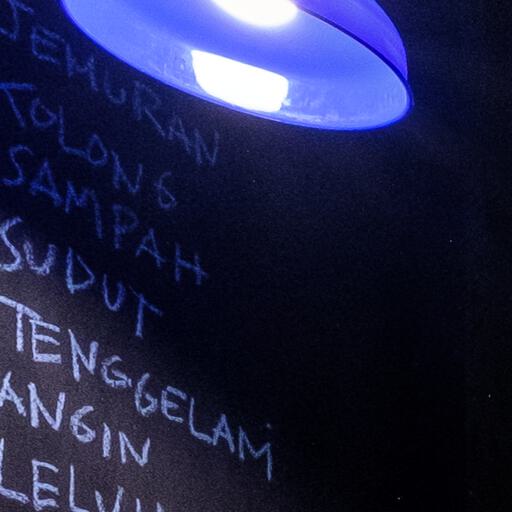 JEMURAN
TOLONG
SAMPAH
SUDUT
TENGGELAM
ANGIN